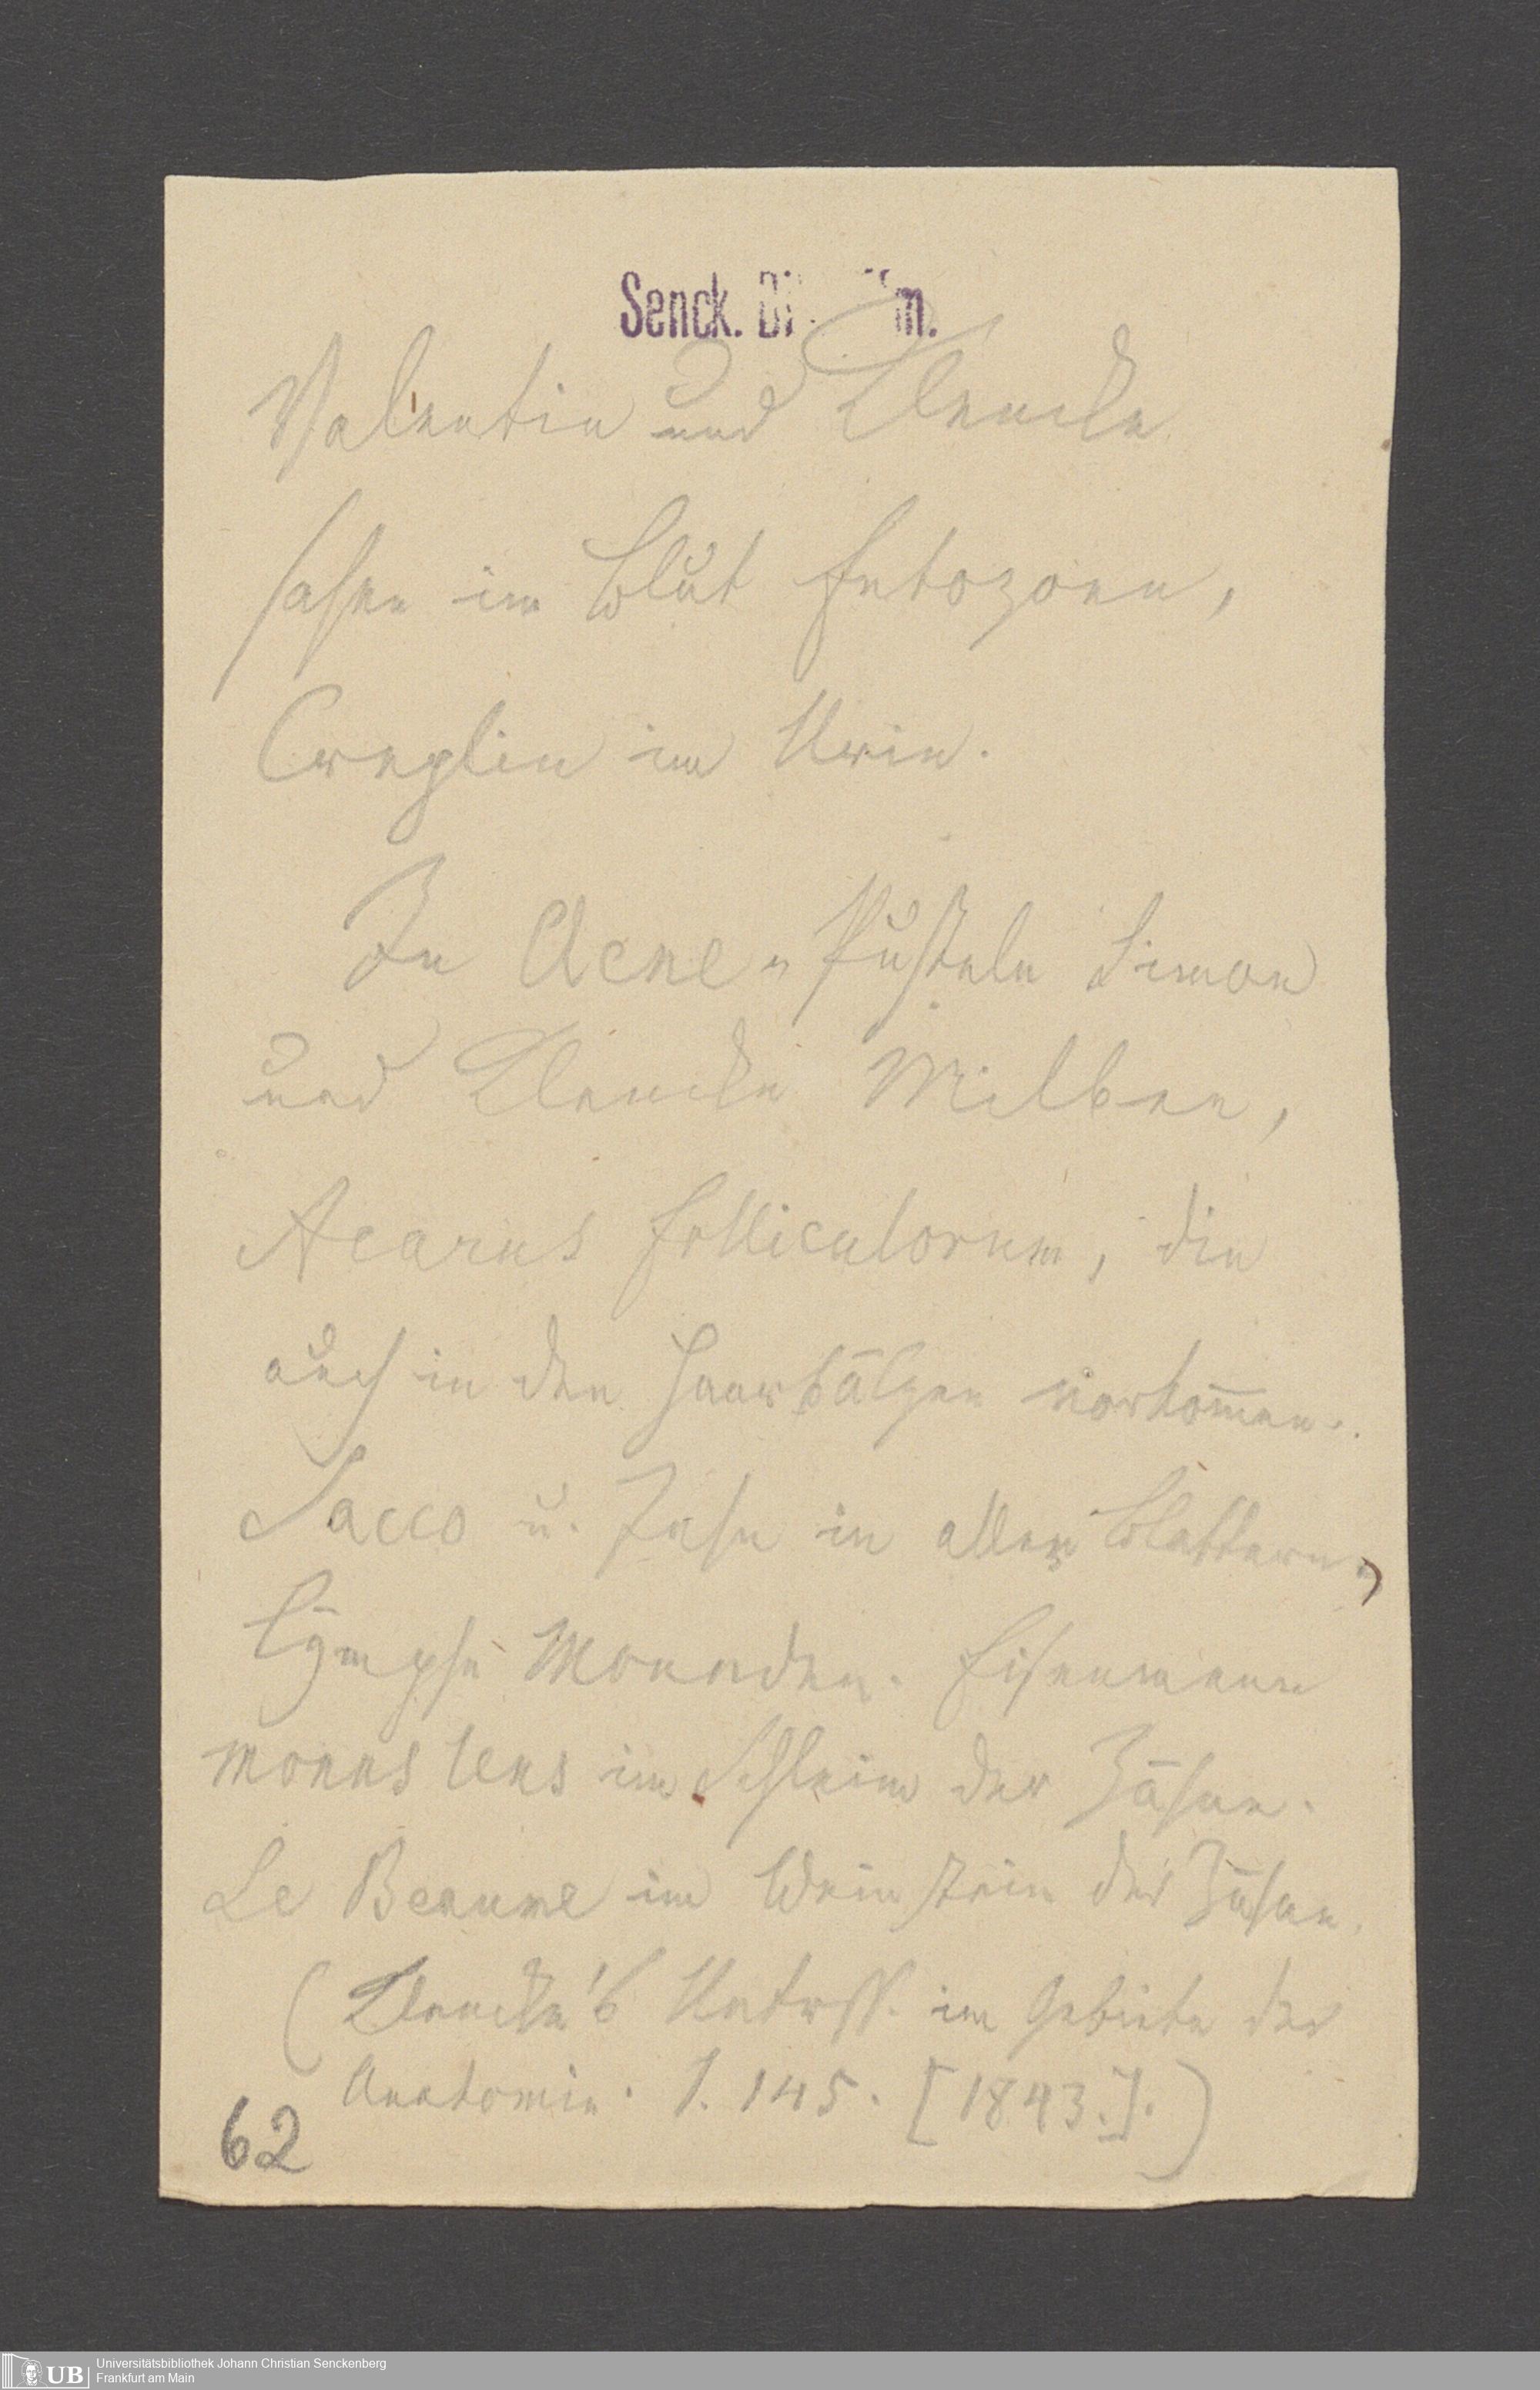 Senck. Bi m.
Valentin und Klencke
sahen im Blut Entozoen,
Creplin im Urin.
In Acne-Pusteln Simon
und Klencke Milben,
Acarus folliculorum, die
auch in den Haarbälgen vorkom̅en.
Sacco u. Jahn in aller Blattern,
Lymphe Monaden. Eisenmann
monas lens im Schleim der Zähne.
Le Beaume im Weinstein der Zähne.
(Klencke's Untrss. im Gebiete der
Anatomie. S. 145. [1843.].)
62
UB
Universitätsbibliothek Johann Christian Senckenberg
Frankfurt am Main